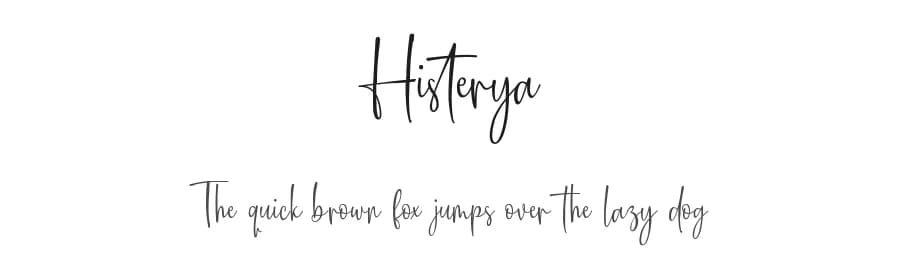 Histerya
The quick brown fox jumps over the lazy dog